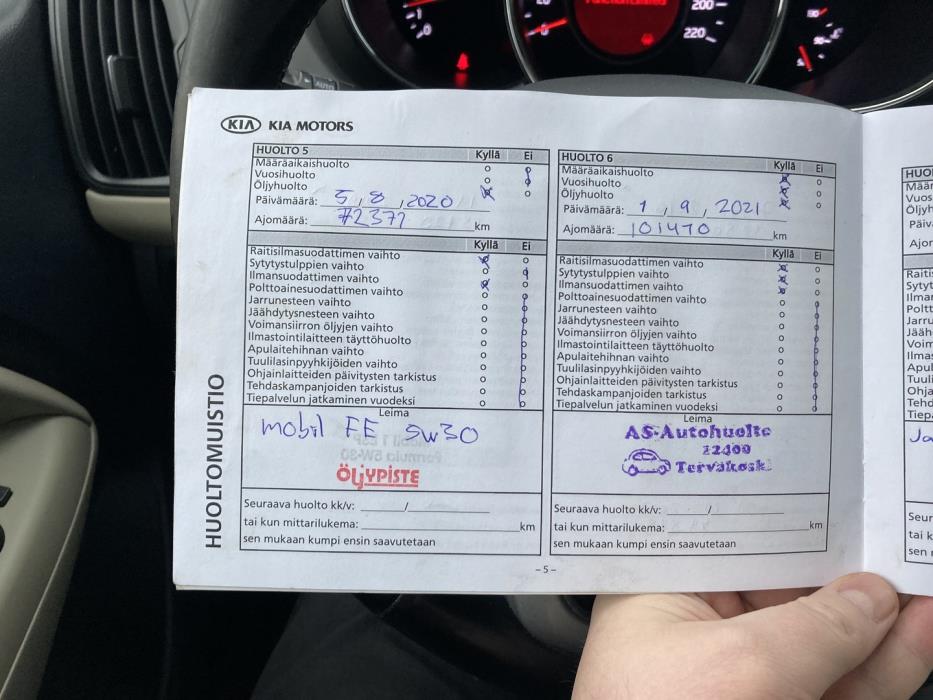 200
220
0
0
KIA KIA MOTORS
HUOLTOMUISTIO
HUOLTO 5 Kyllä Ei
Määräaikaishuolto
Vuosihuolto
Öljyhuolto
Päivämäärä: 5 , 8 , 2020
Ajomäärä: 72371 km
Kyllä Ei
Raitisilmasuodattimen vaihto
Sytytystulppien vaihto
Ilmansuodattimen vaihto
Polttoainesuodattimen vaihto
Jarrunesteen vaihto
Jäähdytysnesteen vaihto
Voimansiirron öljyjen vaihto
Ilmastointilaitteen täyttöhuolto
Apulaitehihnan vaihto
Tuulilasinpyyhkijöiden vaihto
Ohjainlaitteiden päivitysten tarkistus
Tehdaskampanjoiden tarkistus
Tiepalvelun jatkaminen vuodeksi
Leima
mobil FE 5w30
ÖLJYPISTE
Seuraava huolto kk/v: /
tai kun mittarilukema: km
sen mukaan kumpi ensin saavutetaan
HUOLTO 6 Kyllä Ei
Määräaikaishuolto
Vuosihuolto
Öljyhuolto
Päivämäärä: 1 , 9 , 2021
Ajomäärä: 101470 km
Kyllä Ei
Raitisilmasuodattimen vaihto
Sytytystulppien vaihto
Ilmansuodattimen vaihto
Polttoainesuodattimen vaihto
Jarrunesteen vaihto
Jäähdytysnesteen vaihto
Voimansiirron öljyjen vaihto
Ilmastointilaitteen täyttöhuolto
Apulaitehihnan vaihto
Tuulilasinpyyhkijöiden vaihto
Ohjainlaitteiden päivitysten tarkistus
Tehdaskampanjoiden tarkistus
Tiepalvelun jatkaminen vuodeksi
Leima
AS-Autohuolto
12400
Tervakoski
Seuraava huolto kk/v: /
tai kun mittarilukema: km
sen mukaan kumpi ensin saavutetaan
- 5 -